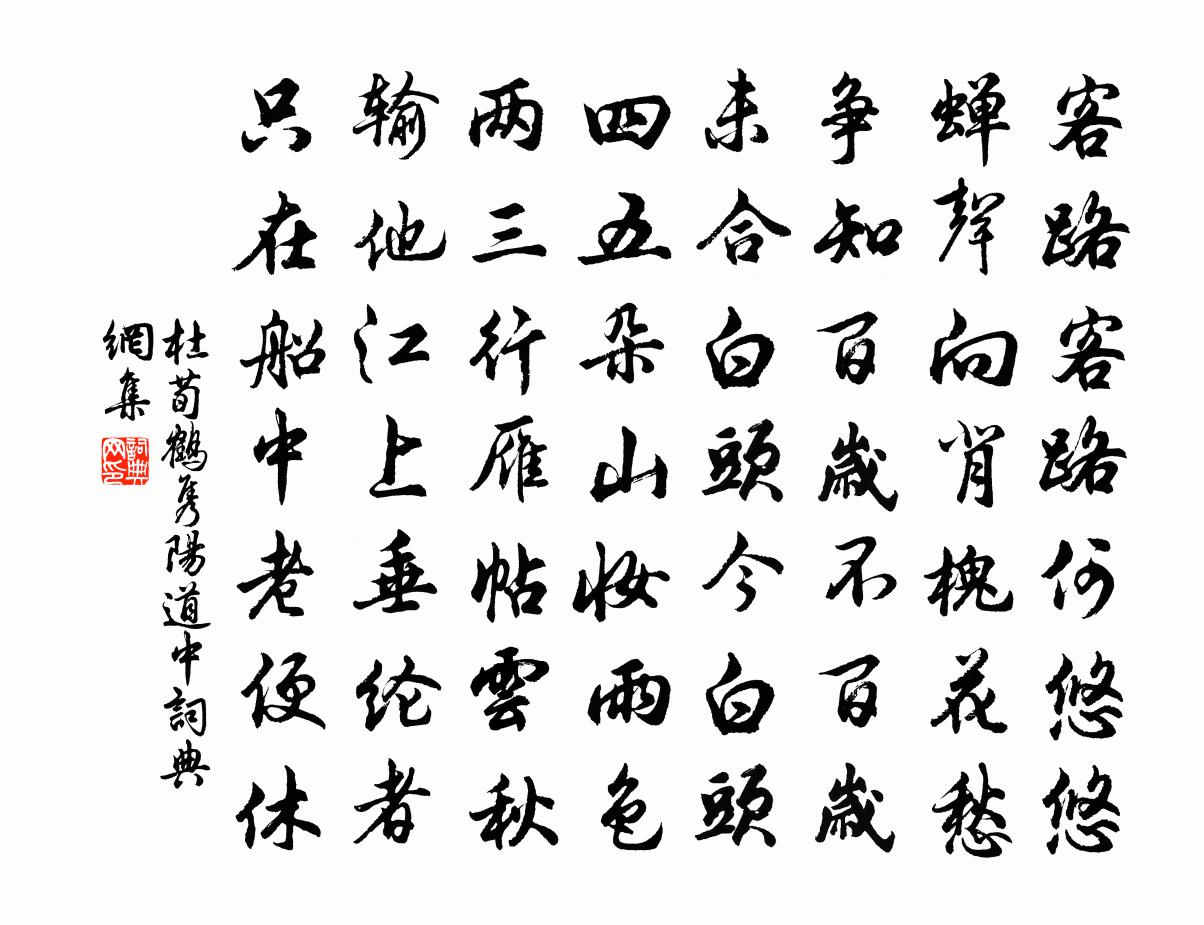 客路客路何悠悠
蝉聲向背槐花愁
争知百歲不百歲
未合白頭今白頭
四五朵山妝雨色
两三行雁帖雲秋
输他江上垂纶者
只在船中老便休
杜荀鶴隽陽道中詞典
網集
詞典
网印